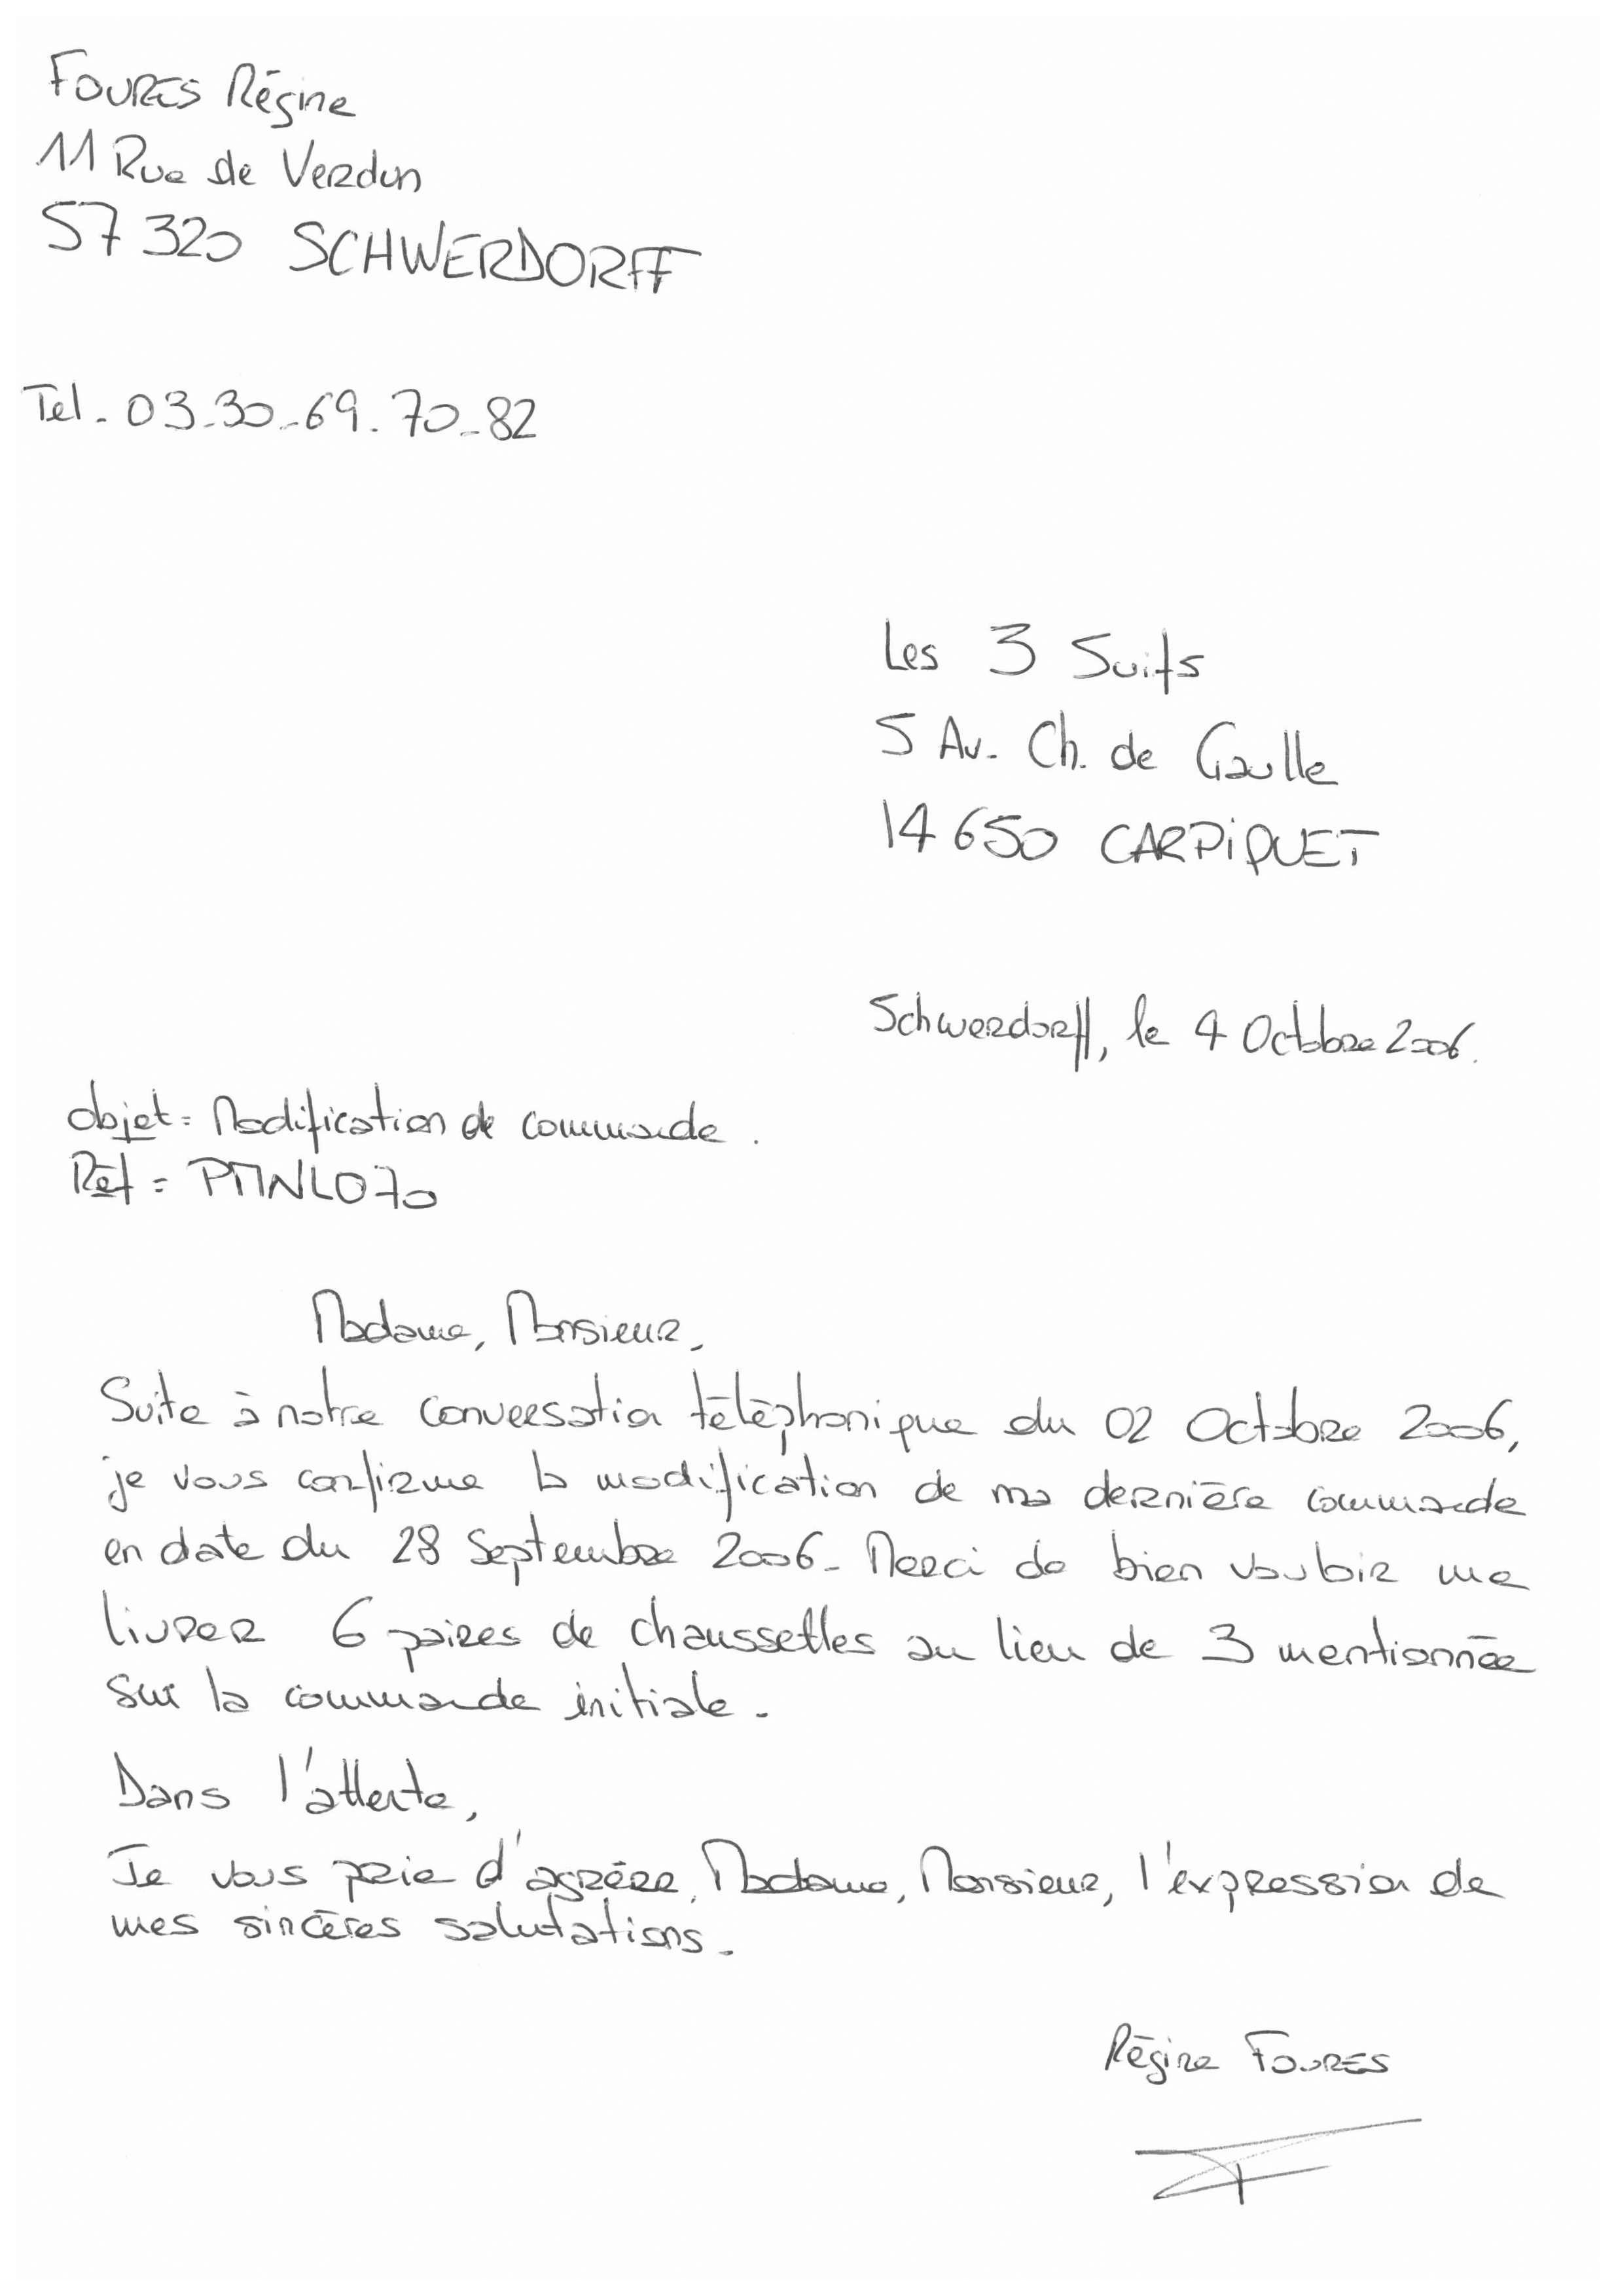 FOURES Régine
11 Rue de Verdun
57 320 SCHWERDORFF
Tel. 03.30.69.70.82
Les 3 Suifs
5 Av. Ch. de Gaulle
14 650 CARPIQUET
Schwerdorff, le 4 Octobre 2006.
objet: Modification de commande.
Réf: PMNLO70
Madame, Monsieur,
Suite à notre conversation téléphonique du 02 Octobre 2006,
je vous confirme la modification de ma dernière commande
en date du 28 Septembre 2006. Merci de bien vouloir me
livrer 6 paires de chaussettes au lieu de 3 mentionnée
sur la commande initiale.
Dans l'attente,
Je vous prie d'agréer, Madame, Monsieur, l'expression de
mes sincères salutations.
Régine FOURES